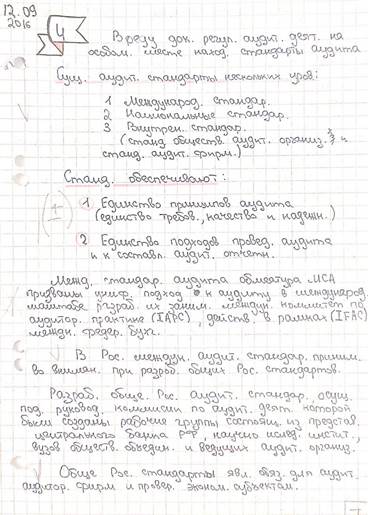 12.09
2016
4
В ряду док. регул. аудит. деят. на
особом. месте наход. стандарты аудита
Сущ. аудит. стандарты нескольких уров:
1 Международ. стандар.
2 Национальные стандар.
3 Внутрен. стандар.
(станд обществ. аудит. организ. и
станд. аудит. фирм.)
Станд. обеспечивают:
1 Единство принципов аудита
(единство требов., качество и надежн.)
2 Единство подходов провед. аудита
и к составл. аудит. отчетн.
Межд. стандар. аудита МСА
призваны униф. подход к аудиту в международ.
масштабе разраб. их заним. междун. комитет по
аудитор. практике (IAPC), действ. в рамках (IFAC)
междн. федер. бухг.
В Рос. междун. аудит. стандар. приним.
во вниман. при разраб. общих Рос. стандартов.
Разраб. обще. Рос. аудит. стандар. осущ.
под. руковод. комиссии по аудит. деят. которой
были созданы рабочие группы состоящ. из представ.
центрального банка РФ, научно исслед. инстит.,
вузов обществ. объедин. и ведущих аудит. организ.
Обще Рос. стандарты явл. обяз. для аудит.
аудитор. фирм и провер. эконом. субъектам.